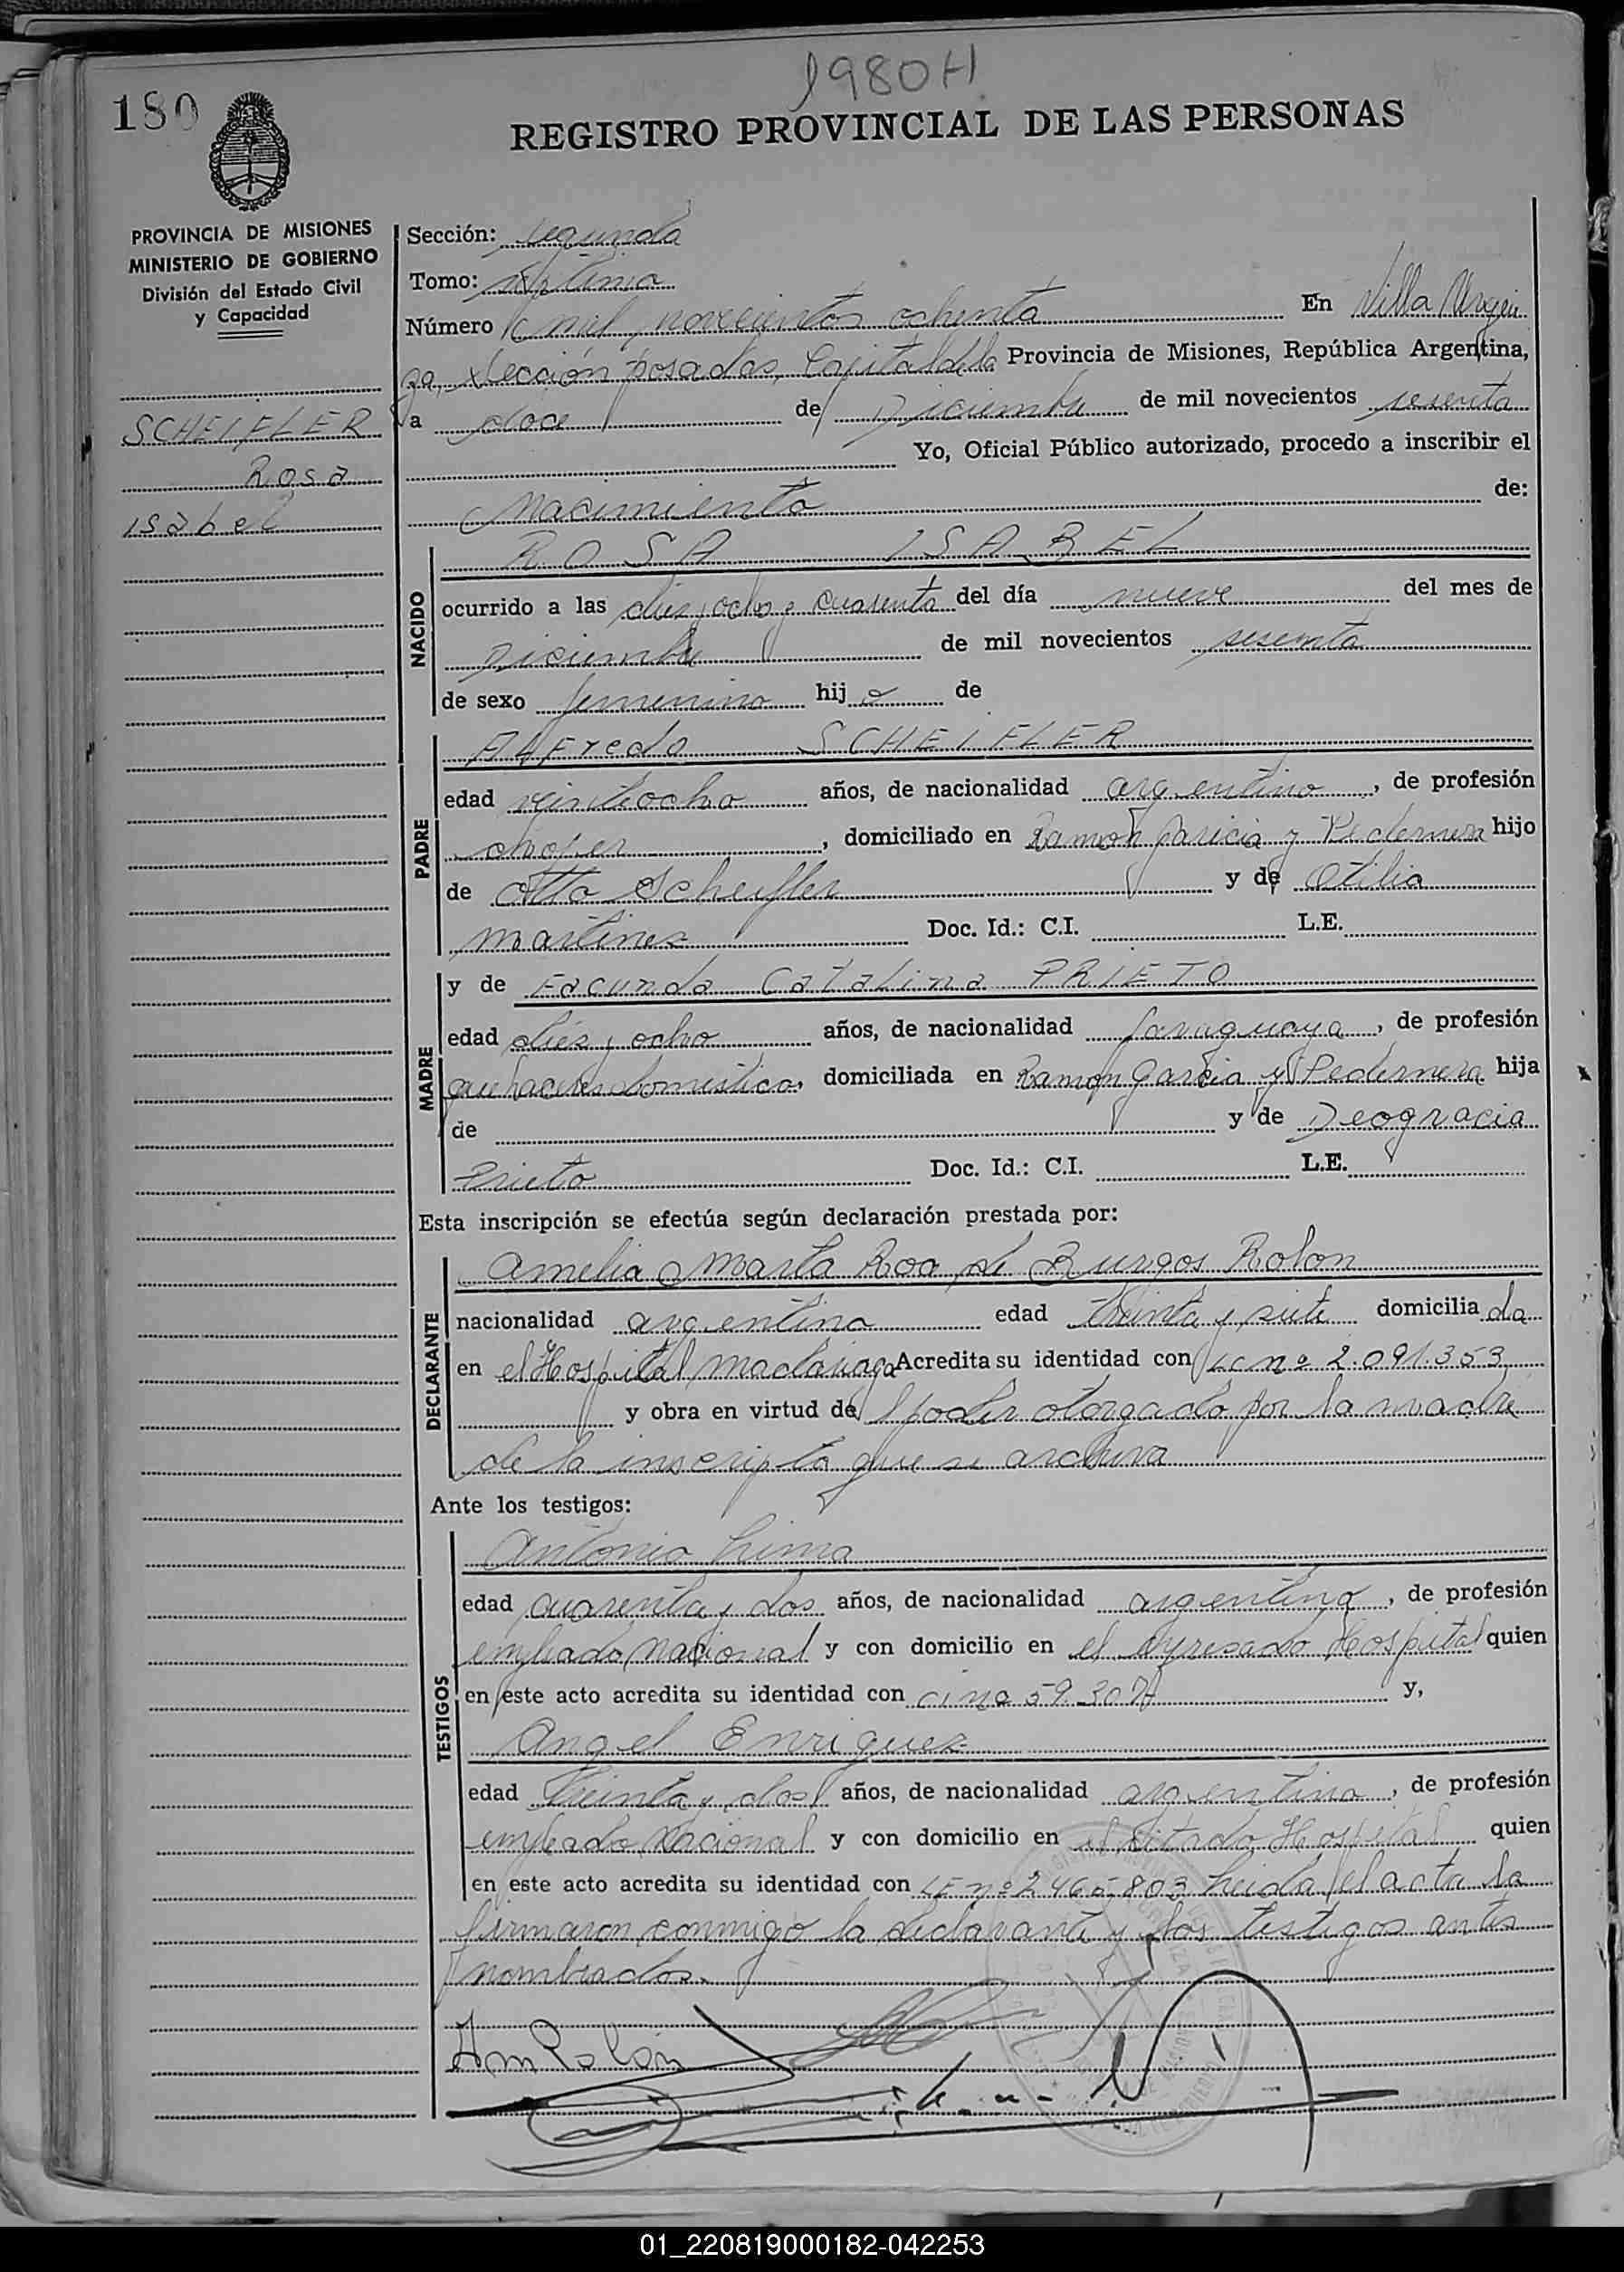 1980H
180
REGISTRO PROVINCIAL DE LAS PERSONAS
PROVINCIA DE MISIONES
MINISTERIO DE GOBIERNO
División del Estado Civil
y Capacidad
SCHEIFLER
Rosa
Isabel
Sección: segunda
Tomo: septimo
Número mil novecientos ochenta En Villa
Sección posadas, Capital de la Provincia de Misiones, República Argentina,
a doce de Diciembre de mil novecientos sesenta
Yo, Oficial Público autorizado, procedo a inscribir el
Nacimiento de:
NACIDO
ROSA ISABEL
ocurrido a las diez y ocho y cuarenta del día nueve del mes de
Diciembre de mil novecientos sesenta
de sexo femenino hij a de
PADRE
Alfredo SCHEIFLER
edad veintiocho años, de nacionalidad argentino, de profesión
chofer, domiciliado en Ramon garicia y Pedernera hijo
de Otto Scheifler y de Otilia
Martinez Doc. Id.: C.I. L.E.
MADRE
y de Facunda Catalina PRIETO
edad diez y ocho años, de nacionalidad paraguaya, de profesión
quehaceres domesticos, domiciliada en Ramon Garcia y Pedernera hija
de y de Deogracia
Prieto Doc. Id.: C.I. L.E.
Esta inscripción se efectúa según declaración prestada por:
DECLARANTE
Amelia Marta Roa de Burgos Rolon
nacionalidad argentina edad treinta y siete domicilia da
en el Hospital Madariaga Acredita su identidad con LC nº 2.091.353
y obra en virtud del poder otorgado por la madre
de la inscripta que se archiva
Ante los testigos:
TESTIGOS
Antonio Lima
edad cuarenta y dos años, de nacionalidad argentino, de profesión
empleado Nacional y con domicilio en el expresado Hospital quien
en este acto acredita su identidad con ci nº y,
Angel Enriquez
edad treinta y dos años, de nacionalidad argentino, de profesión
empleado Nacional y con domicilio en el citado Hospital quien
en este acto acredita su identidad con LE nº 2465.803 Leida el acta la
firmaron conmigo la declarante y los testigos antes
nombrados.
Am Rolón
01_220819000182-042253